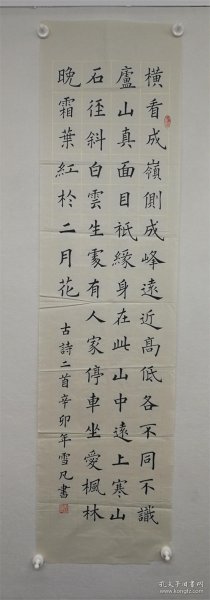 橫看成嶺側成峰遠近髙低各不同不識
廬山真面目衹緣身在此山中遠上寒山
石徑斜白雲生䖏有人家停車坐愛楓林
晚霜葉紅於二月花
古詩二首辛卯年雪凡書
孔夫子旧书网